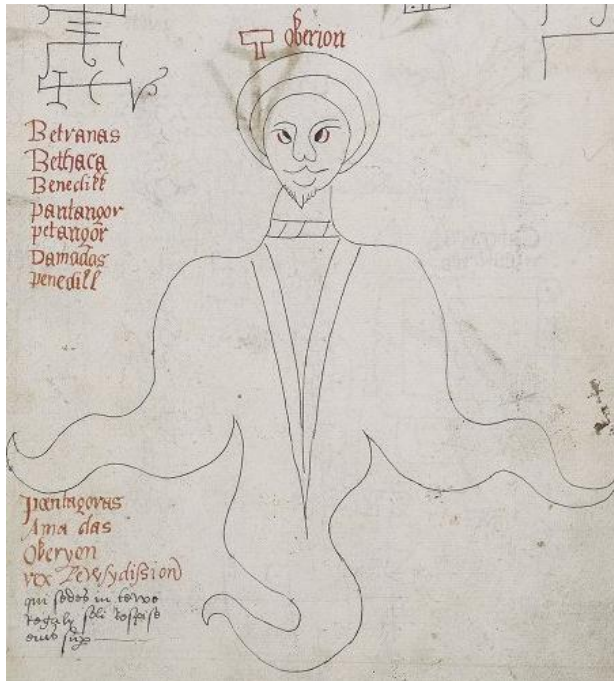 Oberion
Betranas
Bethaca
Benedikk
pantangor
petangor
Damadas
penedill
pantagoras
Ama das
Oberyon
rex
qui sedes in
soli